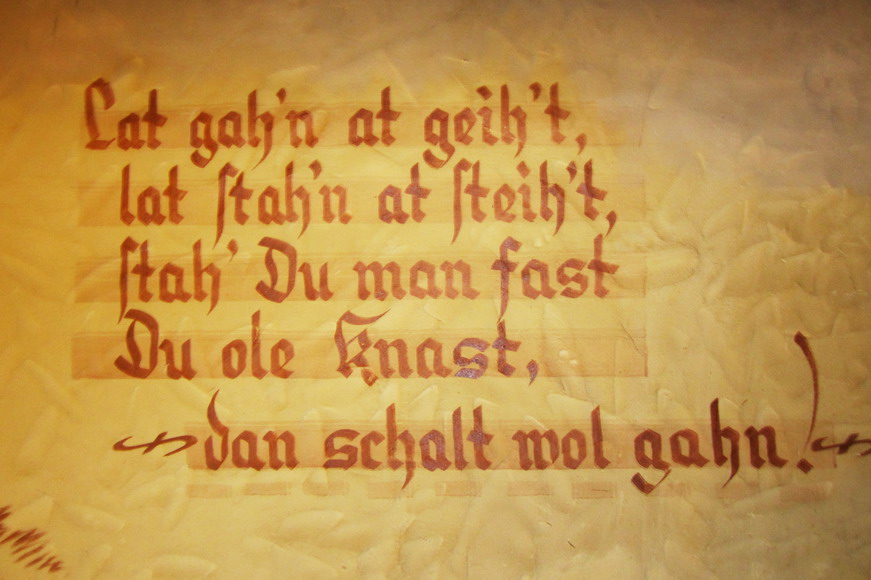 Lat gah'n at geih't,
lat ſtah'n at ſteih't,
ſtah' Du man fast
Du ole Knast,
dan schalt wol gahn!